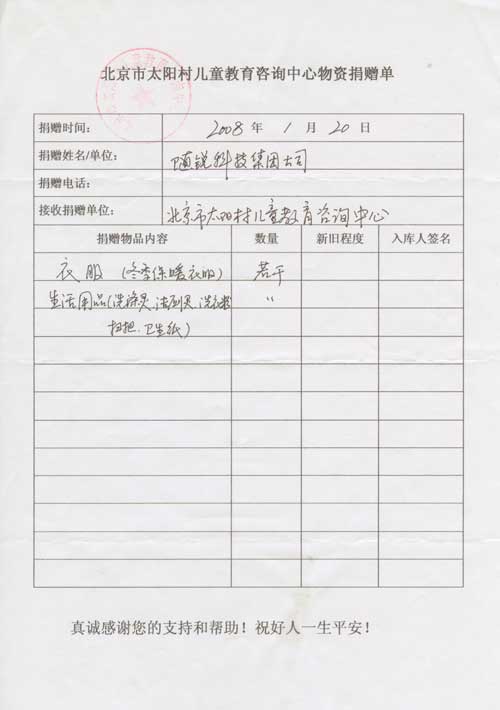 北京市太阳村儿童教育咨询中心物资捐赠单
捐赠时间： 2008 年 1 月 20 日
捐赠姓名/单位： 随锐科技集团公司
捐赠电话：
接收捐赠单位： 北京市太阳村儿童教育咨询中心
捐赠物品内容 数量 新旧程度 入库人签名
衣服（冬季保暖衣服） 若干
生活用品（洗涤灵、洁厕灵、 〃
扫把、卫生纸）
真诚感谢您的支持和帮助！祝好人一生平安！